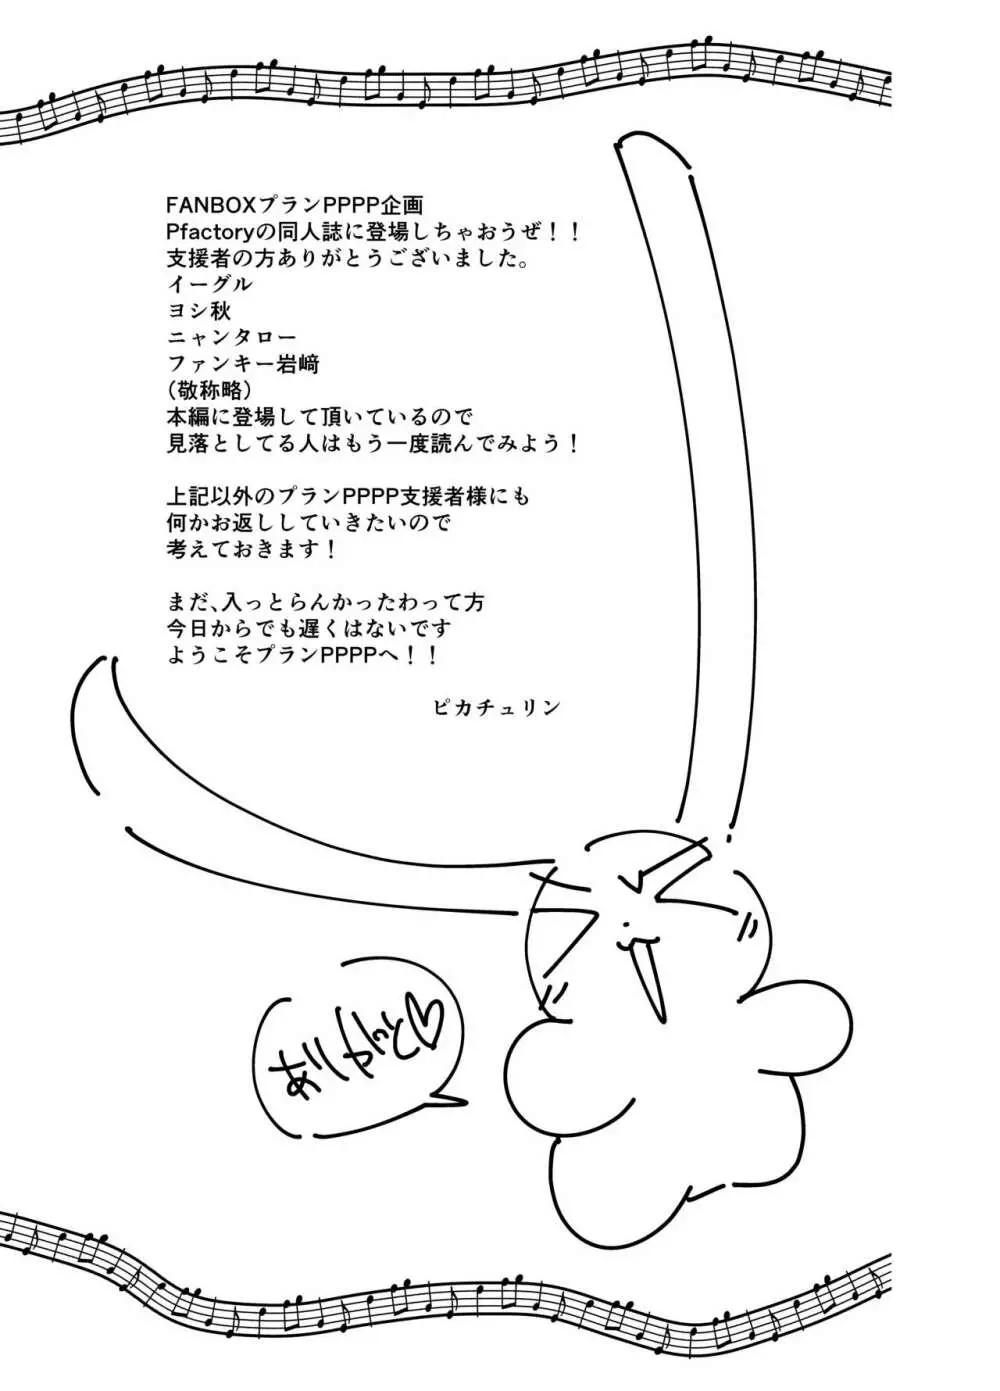 FANBOXプランPPPP企画
Pfactoryの同人誌に登場しちゃおうぜ！！
支援者の方ありがとうございました。
イーグル
ヨシ秋
ニャンタロー
ファンキー岩﨑
（敬称略）
本編に登場して頂いているので
見落としてる人はもう一度読んでみよう！
上記以外のプランPPPP支援者様にも
何かお返ししていきたいので
考えておきます！
まだ、入っとらんかったわって方
今日からでも遅くはないです
ようこそプランPPPPへ！！
ピカチュリン
ありがとぅ♡